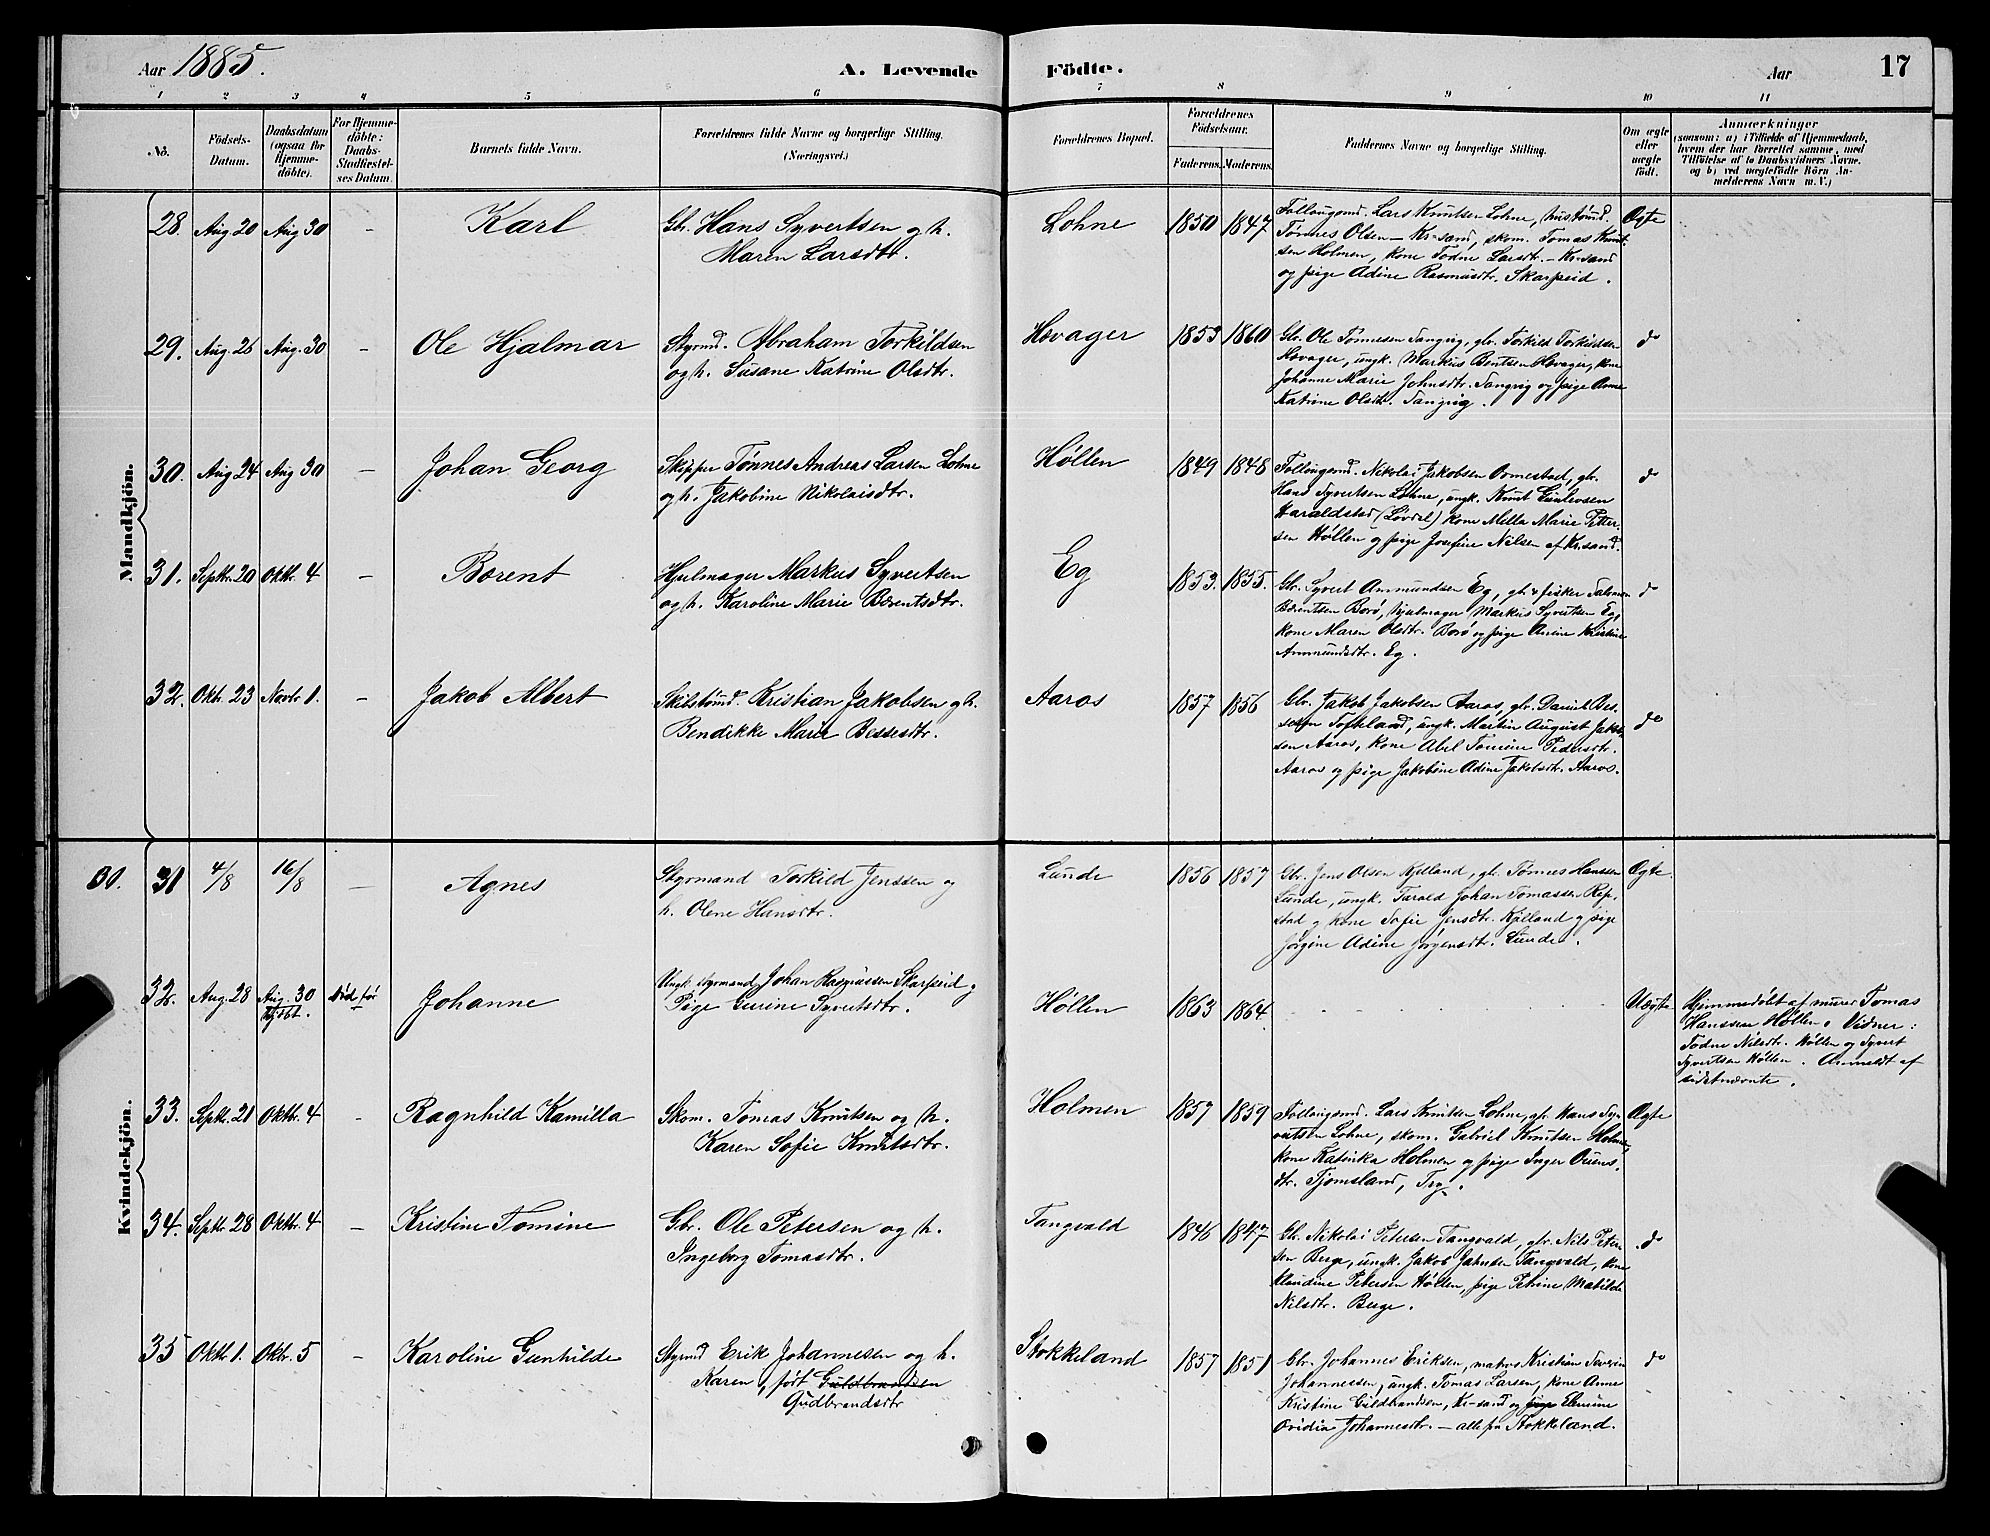 Aar 1885.
A. Levende Födte.
Aar
17
1 2 3 4 5 6 7 8 9 10 11
No.
Födsels-Datum.
Daabsdatum (ogsaa for Hjemmedöbte).
For Hjemmedöbte: Daabs-Stadfæstelses Datum.
Barnets fulde Navn.
Forældrenes fulde Navne og borgerlige Stilling. (Næringsvei.)
Forældrenes Bopæl.
Forældrenes Födselsaar.
Faderens. Moderens.
Faddernes Navne og borgerlige Stilling.
Om ægte eller uægte födt.
Anmærkninger
(saasom: a) i Tilfælde af Hjemmedaab, hvem der har forrettet samme, med Tilföielse af to Daabsvidners Navne, og b) ved uægtefödte Börn Anmelderens Navn m. V.)
Mandkjön.
28. Aug 20 Aug 30 – Karl
Gbr. Hans Syvertsen og h.
Maren Larsdtr.
Lohne 1850 1847
Follougsmd. Lars Knutsen Lohne, hustømd.
Tønnes Olsen – Kr-sand, skom. Tomas Knut-
sen Holmen, kone Todne Larsdtr. – Kr-sand
og pige Adine Rasmusdtr. Skarpeid.
Ægte
29. Aug. 26 Aug. 30 – Ole Hjalmar
Styrmd. Abraham Torkildsen
og h. Susane Katrine Olsdtr.
Høvager 1853 1860
Gbr. Ole Tønnesen Tangvig, gbr. Torkild Torkildsen
Høvager, ungk. Markus Bentsen Høvager, kone
Johanne Marie Johnsdtr. Tangvig og pige Anne
Katrine Olsdtr. Tangvig.
do
30. Aug 24 Aug 30 – Johan Georg
Skipper Tønnes Andreas Larsen Lohne
og h. Jakobine Nikolaisdtr.
Høllen 1849 1848
Follougsmd. Nikolai Jakobsen Ormestad, gbr.
Hans Syvertsen Lohne, ungk. Knut Gunlevsen
Haraldstad (Løvdal) kone Mella Marie Petter-
sen Høllen og pige Josefine Nilsen af Kr.sand.
do
31. Septbr. 20 Oktbr. 4 – Børent
Hjulmager Markus Syvertsen
og h. Karoline Marie Børentsdtr.
Eg 1853. 1855.
Gbr. Syvert Ammundsen Eg, gbr. & fisker Salomon
Børentsen Borø, hjulmager Markus Syvertsen Eg,
kone Maren Olsdtr. Borø og pige Anine Kristine
Ammundsdtr. Eg.
do
32. Okt. 23 Novbr 1. – Jakob Albert
Skibstømd. Kristian Jakobsen og h.
Bendikke Marie Bessesdtr.
Aaros 1857 1856
Gbr. Jakob Jakobsen Aaros, gbr. Daniel Bes-
sesen Tofteland, ungk. Martin August Jakob-
sen Aaros, kone Abel Tomine Pedersdtr.
Aaros og pige Jakobine Adine Jakobsdtr. Aaros.
do
Kvindekjön.
30. 31 4/8 16/8 – Agnes
Styrmand Torkild Jenssen og
h. Olene Hansdtr.
Lunde 1856 1857
Gbr. Jens Olsen Kjelland, gbr. Tønnes Hanssen
Lunde, ungk. Tarald Johan Tomassen Rep-
stad og kone Sofie Jensdtr. Kjelland og pige
Jørgine Adine Jørgensdtr. Lunde.
Ægte.
32. Aug. 28 Aug. 30 hjdbt. død før Johanne
Ungk. styrmand Johan Rasmussen Skarpeid og
Pige Gurine Syvertsdtr.
Høllen 1863 1864.
Uægte
Hjemmedøbt af murer Tomas
Hanssen Høllen. Vidner:
Todne Nilsdtr. Høllen og Syvert
Syvertsen Høllen. Anmeldt af
sidstnævnte.
33. Septbr. 21 Oktbr. 4 – Ragnhild Kamilla
Skom. Tomas Knutsen og h.
Karen Sofie Knutsdtr.
Holmen 1857 1859
Follougsmd. Lars Knutsen Lohne, gbr. Hans Sy-
vertsen Lohne, skom. Gabriel Knutsen Holmen,
kone Katinka Holmen og pige Inger Ouens-
dtr. Tjomsland, Try.
Ægte
34. Septbr. 28 Oktbr. 4 – Kristine Tomine
Gbr. Ole Petersen og h.
Ingeborg Tomasdtr.
Tangvald 1846 1847
Gbr. Nikolai Petersen Tangvald, gbr. Nils Peter-
sen Berge, ungk. Jakob Jahnsen Tangvald, kone
Klaudine Petersen Høllen, pige Petrine Matilde
Nilsdtr. Berge.
do
35 Oktbr. 1. Oktbr. 5 – Karoline Gunhilde
Styrmd Erik Johannesen og h.
Karen, født Guldbrandsen
Gudbrandsdtr
Stokkeland 1857 1851
Gbr. Johannes Eriksen, matros Kristian Severin
Johannessen, ungk. Tomas Larsen, kone Anne
Kristine Guldbrandsen, Kr-sand og pige Elenine
Ovidia Johannesdtr. – alle fra Stokkeland.
do